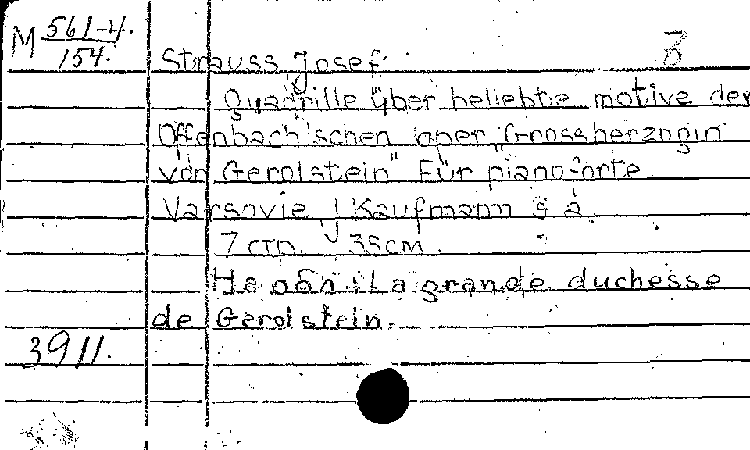 M 561-4.
154.
З
Strauss Josef.
Quadrille über beliebtie motive der
Offenbach'schen oper „Grossherzogin
von Gerolstein" Für piano-forte
Varsovie J Kaufmann s a.
7 стр. 35cm.
На обл: La grande duchesse
de Gerolstein.
3911.